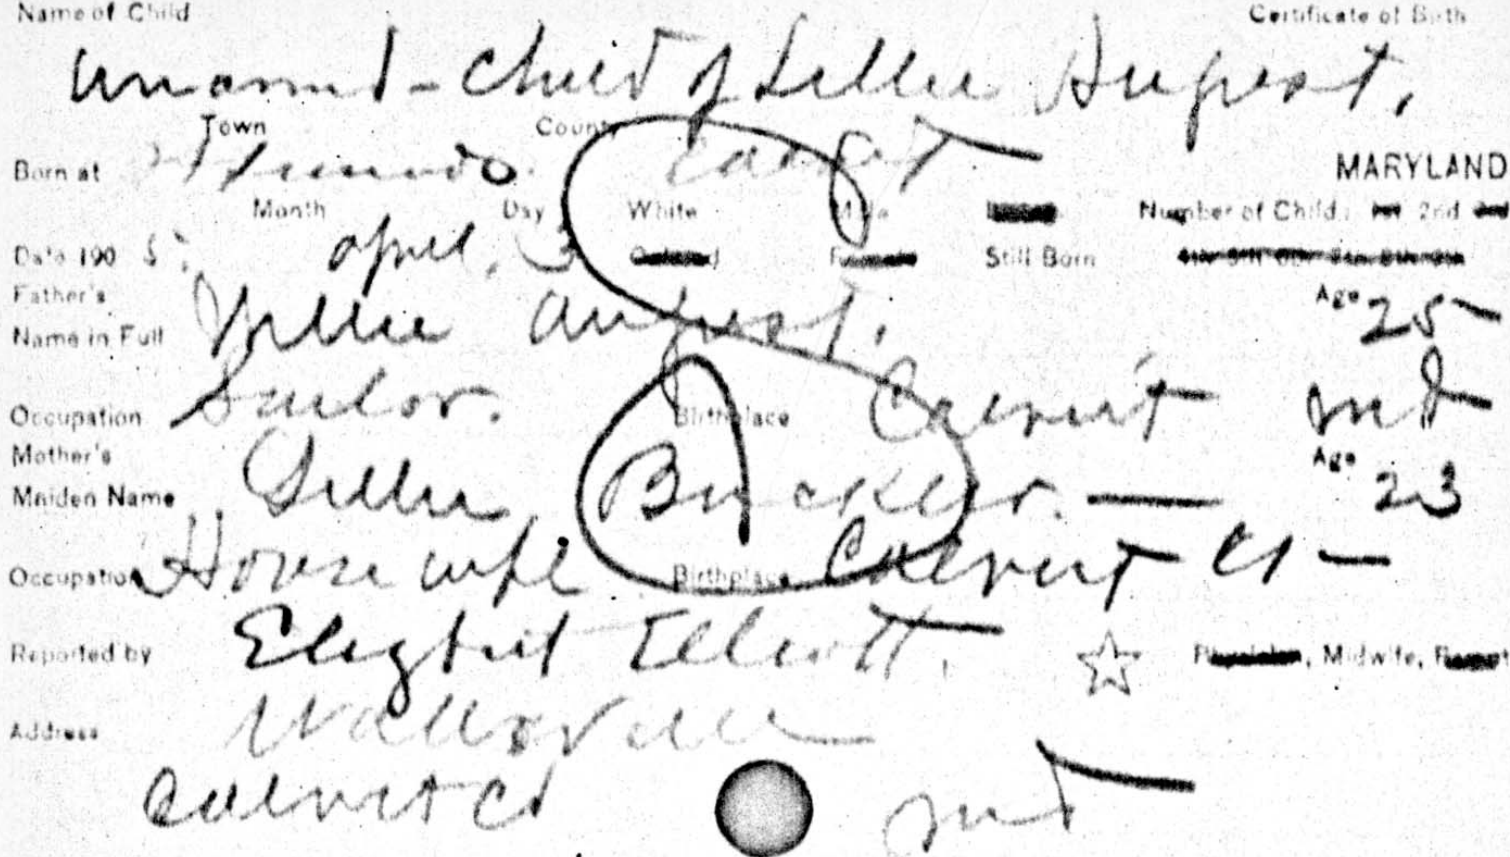 Name of Child Certificate of Birth
unamed - Child of Lillie August.
Town County
Born at MARYLAND
Month Day White Male Number of Child: 1st 2nd 3rd
Date 190 5: April, 3 Colored Female Still Born
Father's Age 25
Name in Full Willie August.
Occupation Sailor. Birthplace Calvert Md
Mother's Age 23
Maiden Name Lillie Buckler. —
Occupation House wife Birthplace Calvert Co —
Reported by Elizbet Elliott. Physician, Midwife, Parent
Address Wallsville
Calvert Co Md